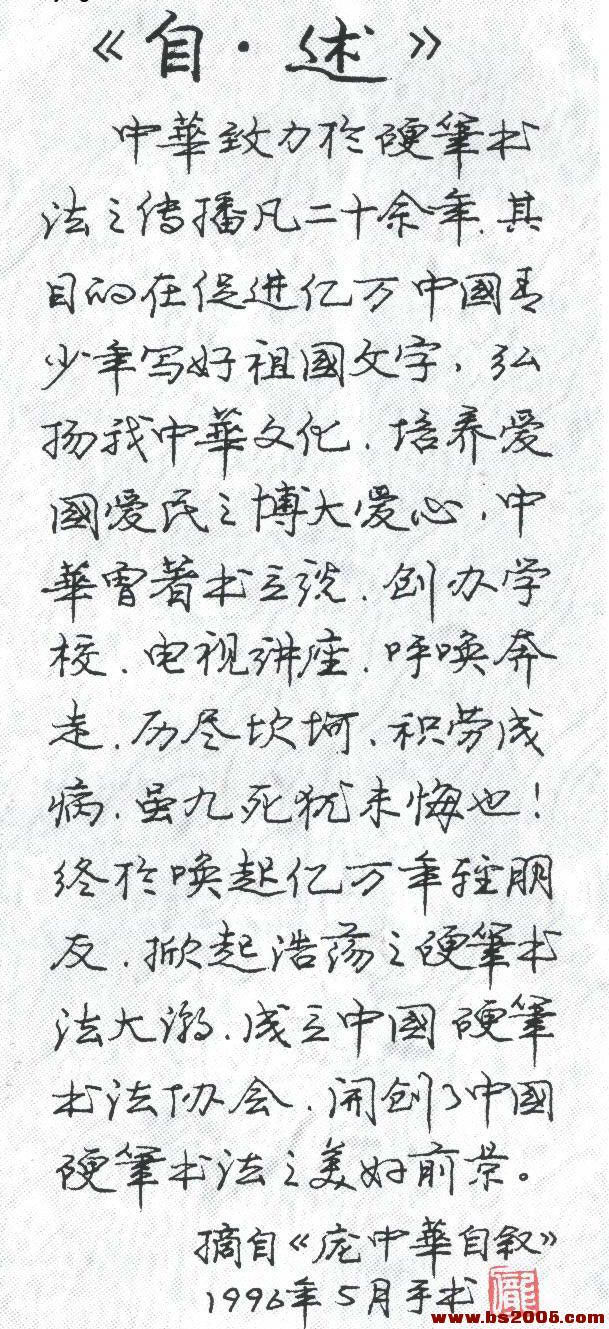 《自·述》
中華致力於硬筆书
法之传播凡二十余年.其
目的在促进亿万中國青
少年写好祖國文字，弘
扬我中華文化.培养爱
國爱民之博大爱心，中
華曾著书立说.创办学
校.电视讲座.呼唤奔
走.历尽坎坷.积劳成
病.虽九死犹未悔也！
终於唤起亿万年轻朋
友.掀起浩荡之硬筆书
法大潮.成立中國硬筆
书法协会.开创了中國
硬筆书法之美好前景。
摘自《庞中華自叙》
1996年5月手书
www.bs2005.com